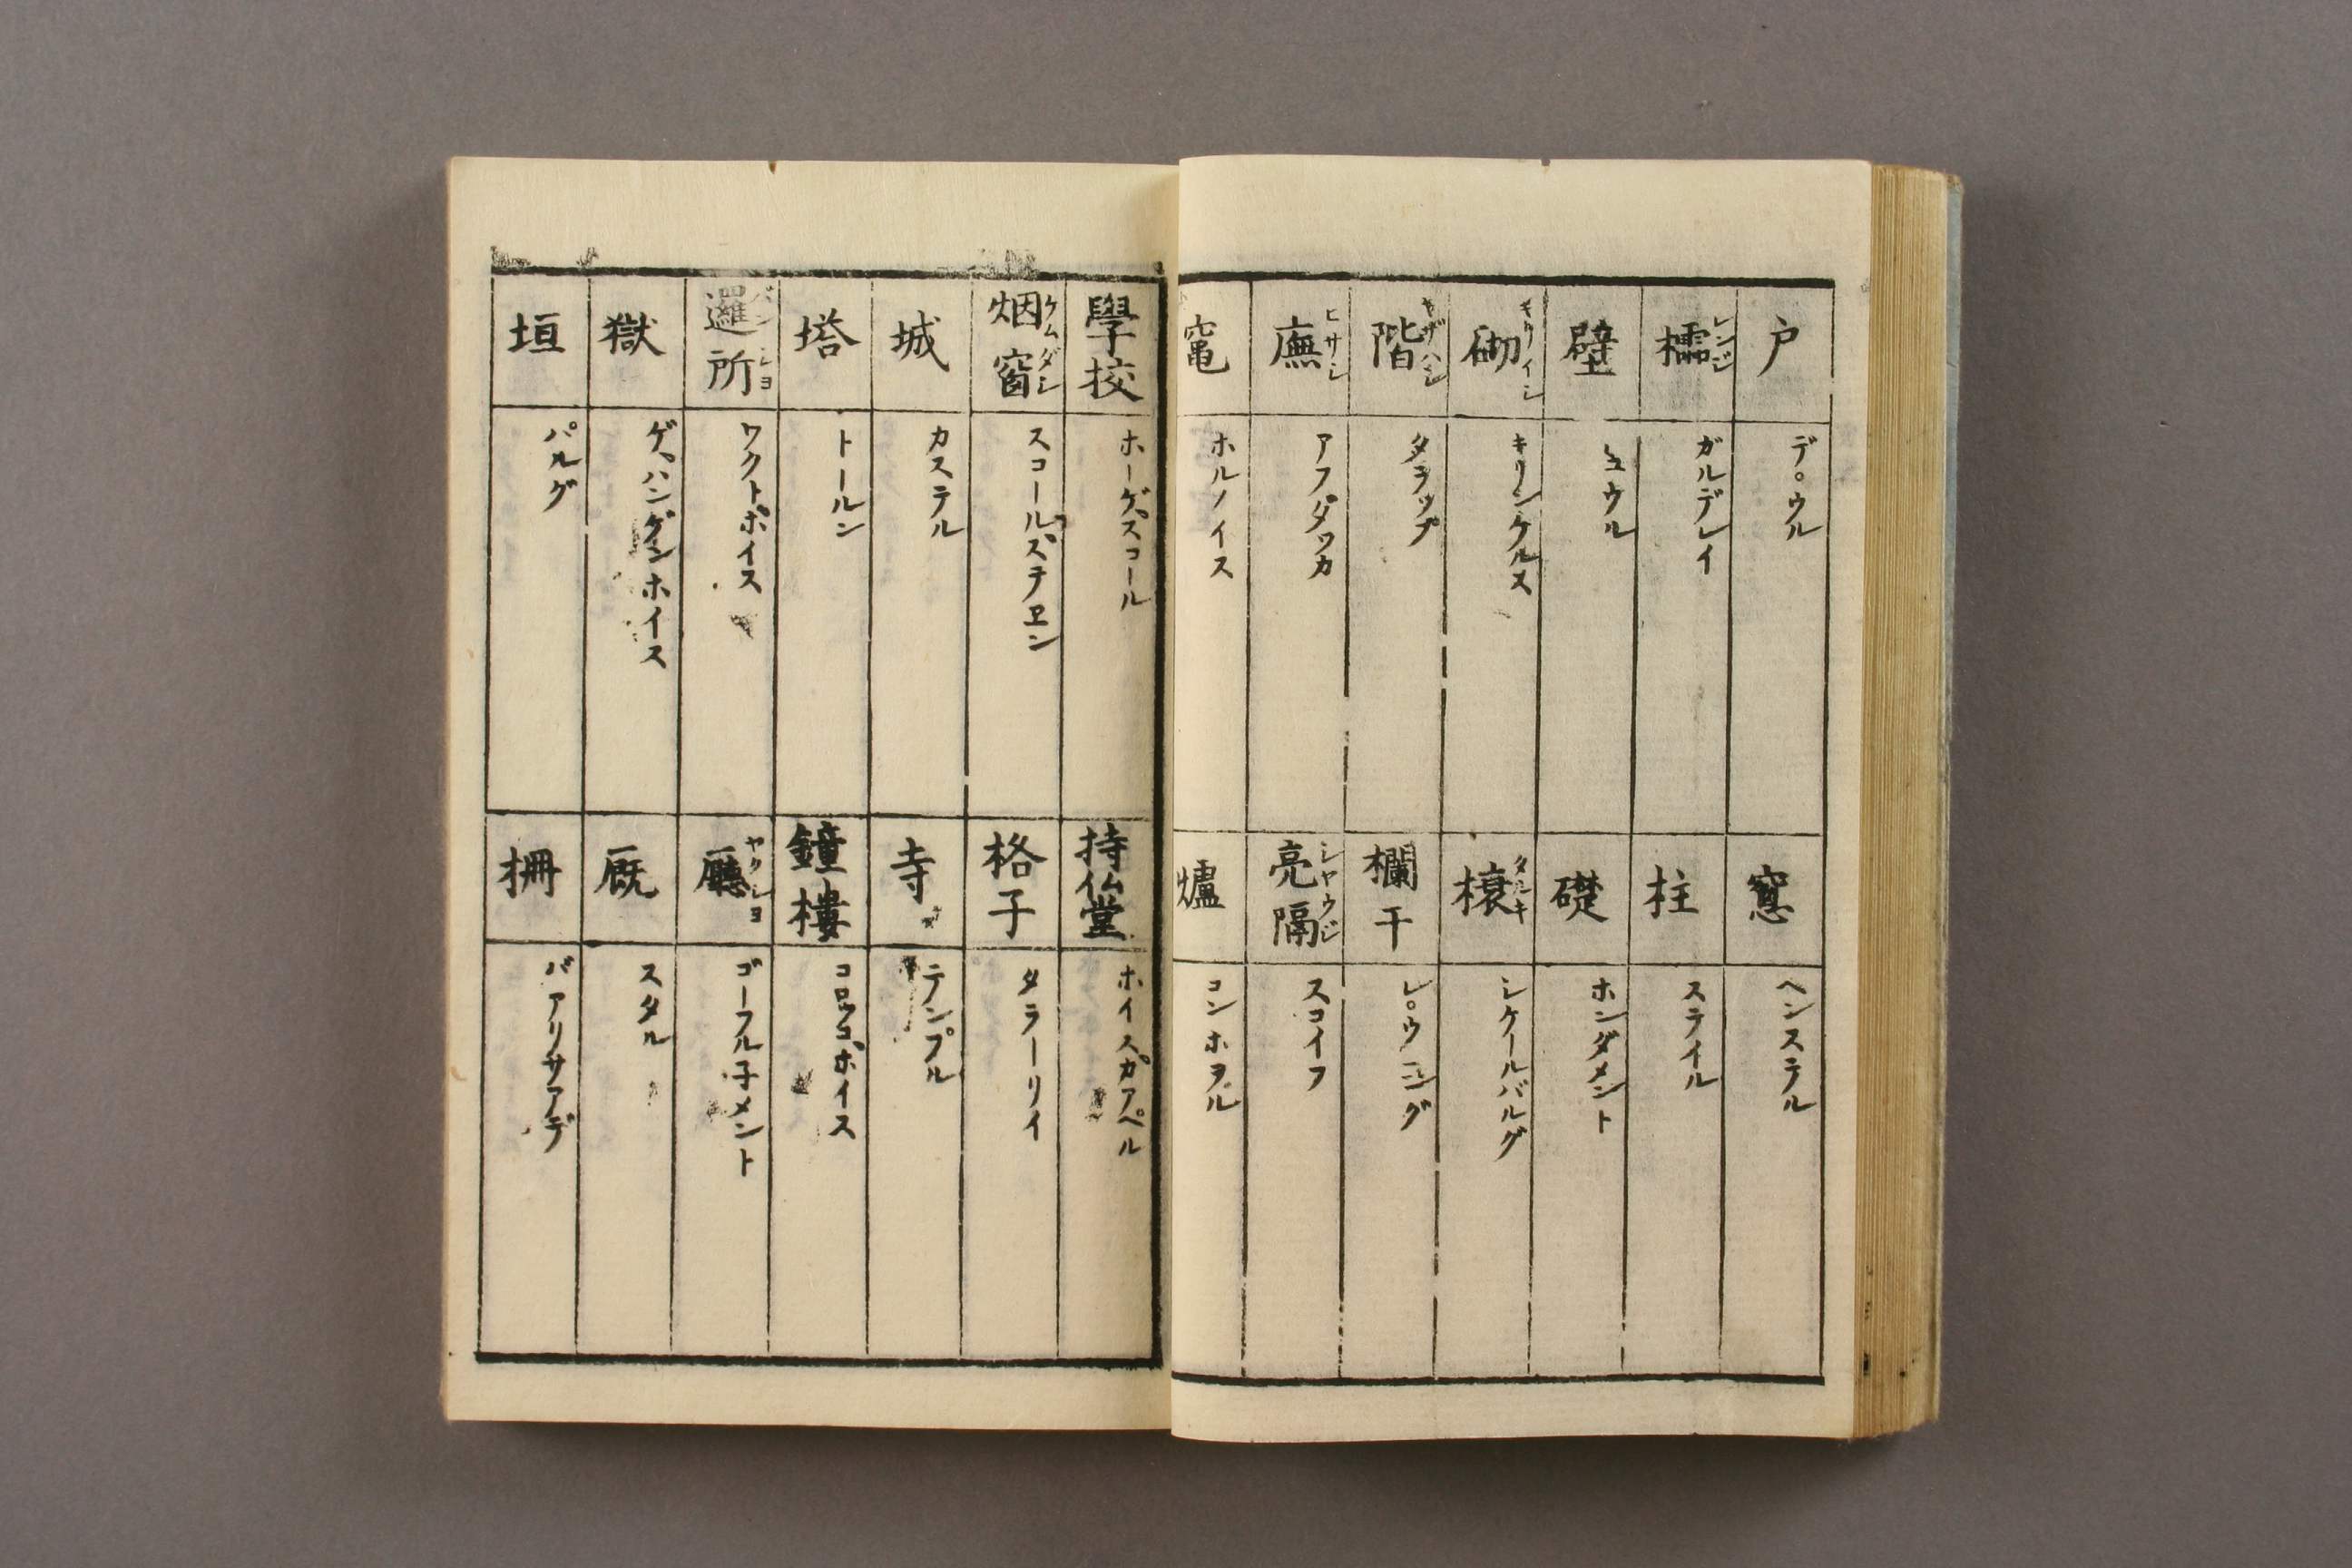 戸 デ。ウル
櫺 レンジ ガルデレイ
壁 ミュウル
砌 キリイシ キリンケルス
階 キザハシ タラップ
廡 ヒサシ アフダッカ
竃 ホルノイス
窻 ヘンステル
柱 スライル
礎 ホンダメント
榱 タルキ シケールバルグ
欄干 レ。ウニング
亮隔 シヤウジ スコイフ
爐 コンホヲル
學校 ホーゲスコール
烟窗 ケムダシ スコールステヱン
城 カステル
塔 トールン
邏所 バンシヨ ワクトホイス
獄 ゲハンゲンホイス
垣 パルグ
持仏堂 ホイスカアペル
格子 タラーリイ
寺 テンプル
鐘樓 コロツコホイス
廳 ヤクシヨ ゴーフル子メント
厩 スタル
柵 バアリサアデ